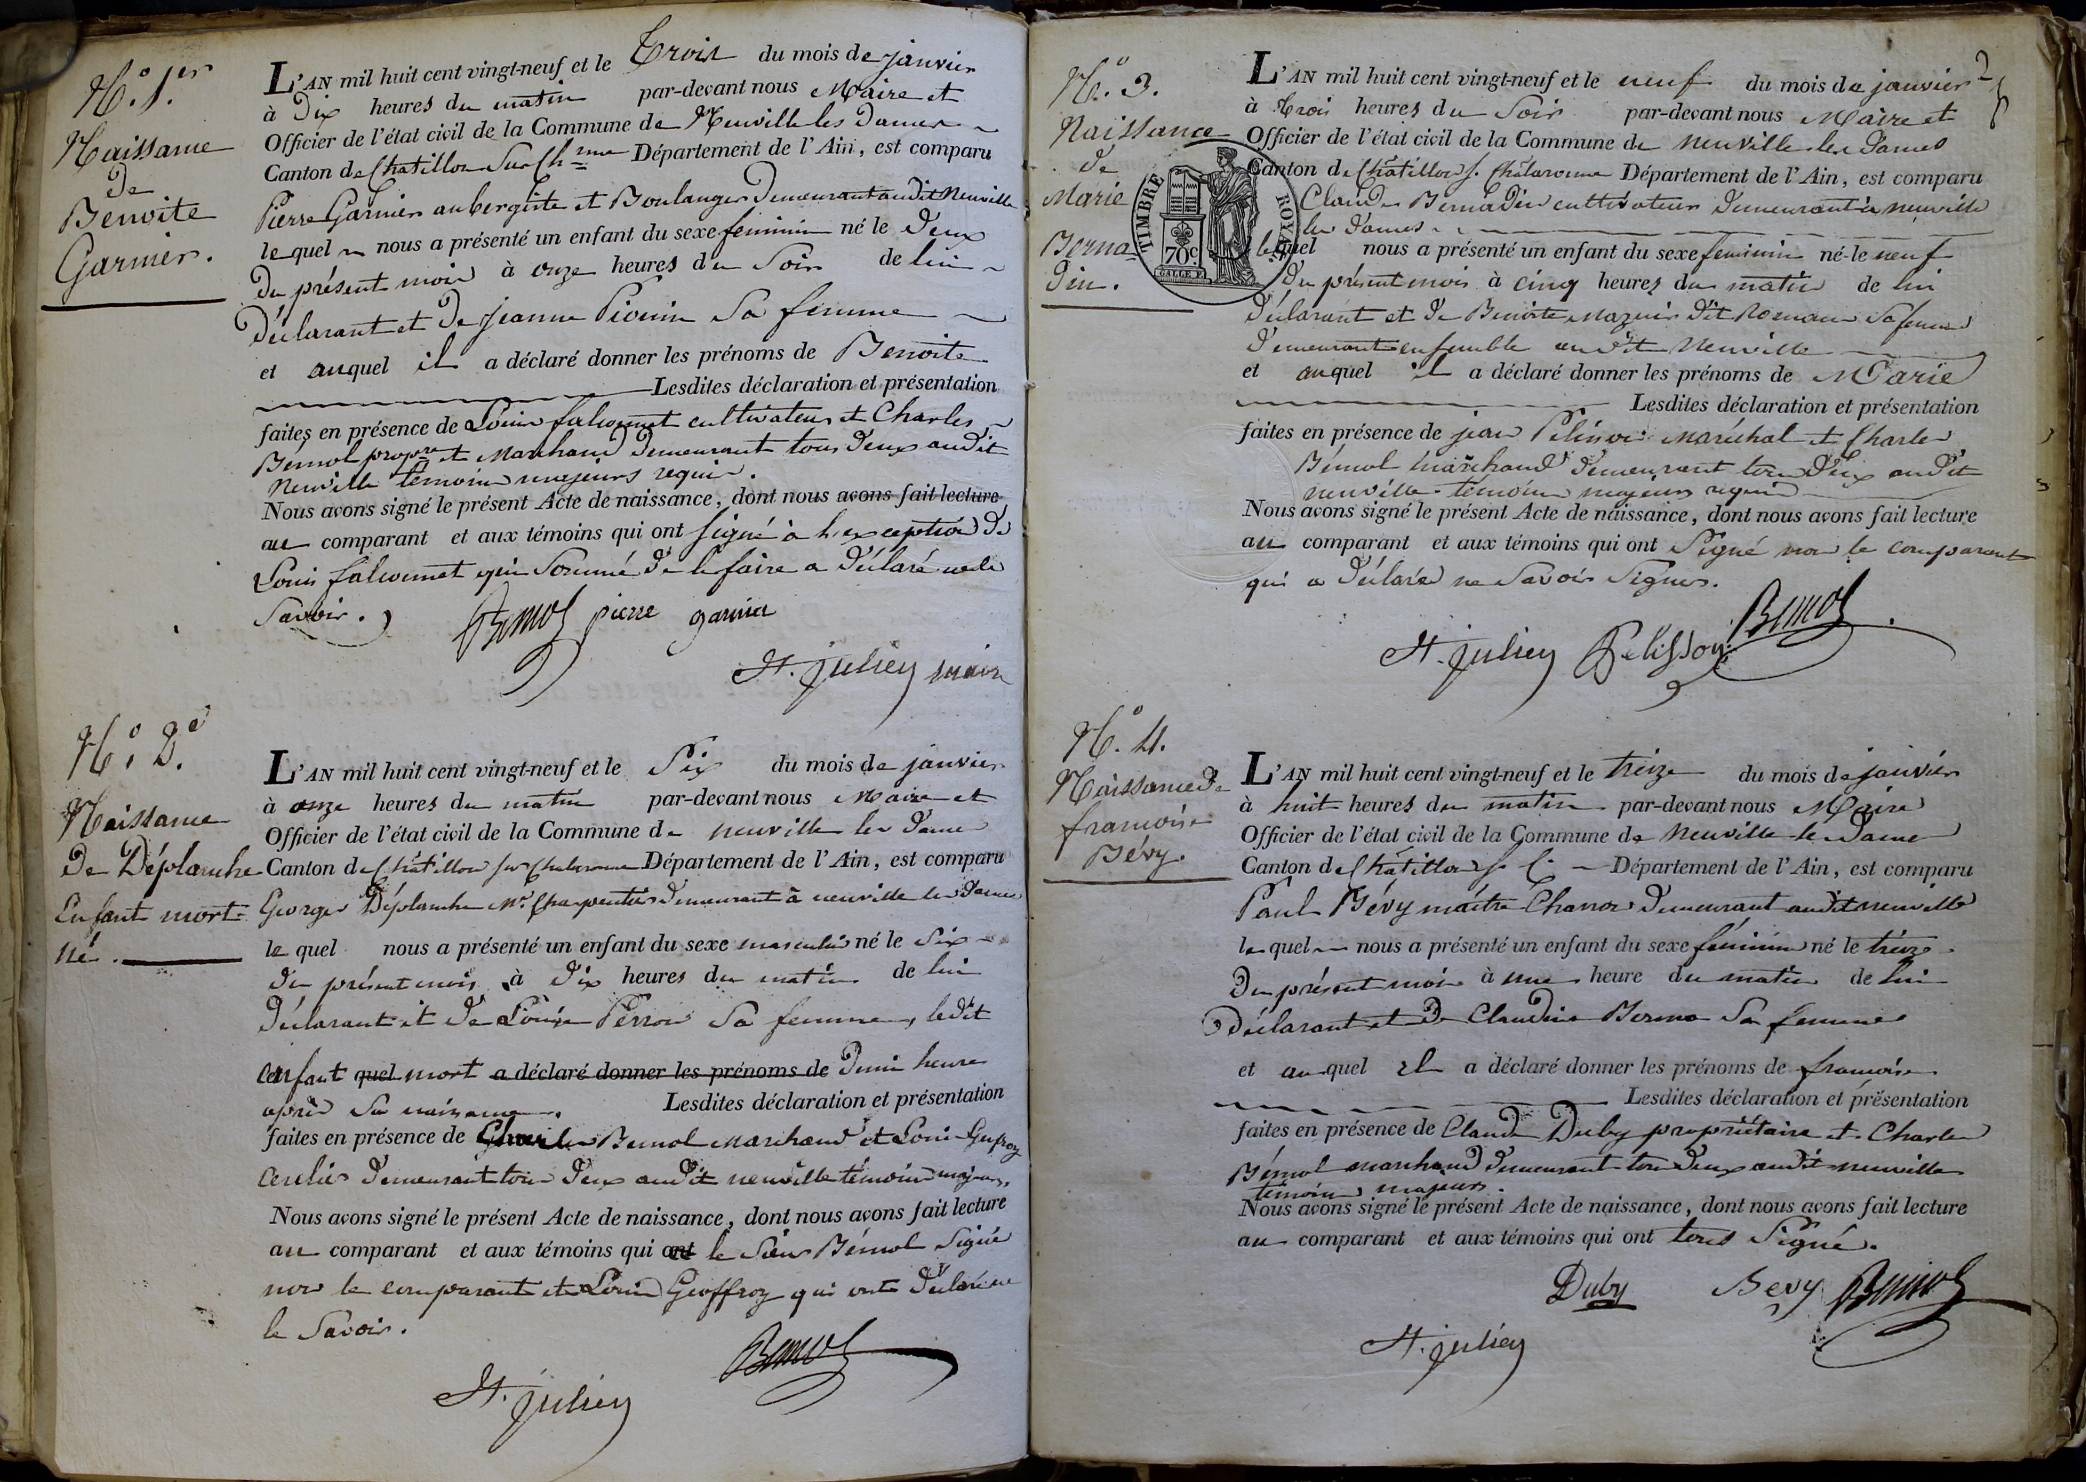 N.º 1.er
Naissance
de
Benoite
Garnier.
L'AN mil huit cent vingt-neuf et le Trois du mois de janvier
à Dix heures du matin par-devant nous Maire et
Officier de l'état civil de la Commune de Neuville les Dames
Canton de Chatillon Sur Ch.nne Département de l'Ain, est comparu
Pierre Garnier aubergiste et Boulanger Demeurant audit Neuville
le quel nous a présenté un enfant du sexe feminin né le Deux
Du présent mois à onze heures du Soir de lui
Déclarant et De Jeanne Pionin Sa femme
et auquel il a déclaré donner les prénoms de Benoite
Lesdites déclaration et présentation
faites en présence de Louis falconnet cultivateur et Charles
Bémol propre et Marchand Demeurant tous Deux audit
Neuville témoins majeurs requis.
Nous avons signé le présent Acte de naissance, dont nous avons fait lecture
au comparant et aux témoins qui ont Signé à l'exception de
Louis falconnet qui Sommé De le faire a Déclaré ne le
Savoir.
Bemol pierre garnier
St. julien maire
N.º 2.e
Naissance
De Déplanche
Enfant mort-
né.
L'AN mil huit cent vingt-neuf et le Six du mois de janvier
à onze heures du matin par-devant nous Maire et
Officier de l'état civil de la Commune de neuville les Dames
Canton de Châtillon sur Chalaronne Département de l'Ain, est comparu
Georges Déplanche M.e Charpentier Demeurant à neuville les Dames
le quel nous a présenté un enfant du sexe masculin né le Six
Du présent mois à Dix heures du matin de lui
Déclarant et De Louise Perron Sa femme, ledit
enfant quel mort a déclaré donner les prénoms de Demi heure
après Sa naissance. Lesdites déclaration et présentation
faites en présence de Charles Bemol Marchand et Louis Geofroy
Demeurant tous Deux audit neuville témoins majeurs,
Nous avons signé le présent Acte de naissance, dont nous avons fait lecture
au comparant et aux témoins qui ont le Sieur Bémol Signé
non le comparant et Louis Geoffroy qui ont Déclaré ne
le Savoir.
Bemol
St. julien
2
N.º 3.
Naissance
de
Marie
Berna
din.
TIMBRE ROYAL
70c
L'AN mil huit cent vingt-neuf et le neuf du mois de janvier
à trois heures du Soir par-devant nous Maire et
Officier de l'état civil de la Commune de neuville les Dames
Canton de Châtillon s. Chalaronne Département de l'Ain, est comparu
Claude Bernadin cultivateur Demeurant à neuville
les Dames
lequel nous a présenté un enfant du sexe feminin né le neuf
Du présent mois à cinq heures du matin de lui
Déclarant et De Benoite Mazuir Dit Romain Sa femme
Demeurant ensemble audit Neuville
et auquel il a déclaré donner les prénoms de Marie
Lesdites déclaration et présentation
faites en présence de jean Pelisson Maréchal et Charles
Bémol marchand Demeurant tous Deux audit
neuville témoins majeurs requis
Nous avons signé le présent Acte de naissance, dont nous avons fait lecture
au comparant et aux témoins qui ont Signé non le comparant
qui a Déclaré ne Savoir Signer.
Bemol
St. julien Pelisson
N.º 4.
Naissance De
françoise
Bévy.
L'AN mil huit cent vingt-neuf et le treize du mois de janvier
à huit heures du matin par-devant nous Maire
Officier de l'état civil de la Commune de Neuville les Dames
Canton de Châtillon s. C. Département de l'Ain, est comparu
Paul Bévy maître Charron Demeurant audit neuville
le quel nous a présenté un enfant du sexe féminin né le treize
Du présent mois à une heure du matin de lui
Déclarant et De Claudine Sa femme
et auquel il a déclaré donner les prénoms de françoise
Lesdites déclaration et présentation
faites en présence de Claude Duby propriétaire et Charles
Bémol marchand Demeurant tous Deux audit neuville
témoins majeurs.
Nous avons signé le présent Acte de naissance, dont nous avons fait lecture
au comparant et aux témoins qui ont tous Signé.
Duby Bevy Bemol
St. julien